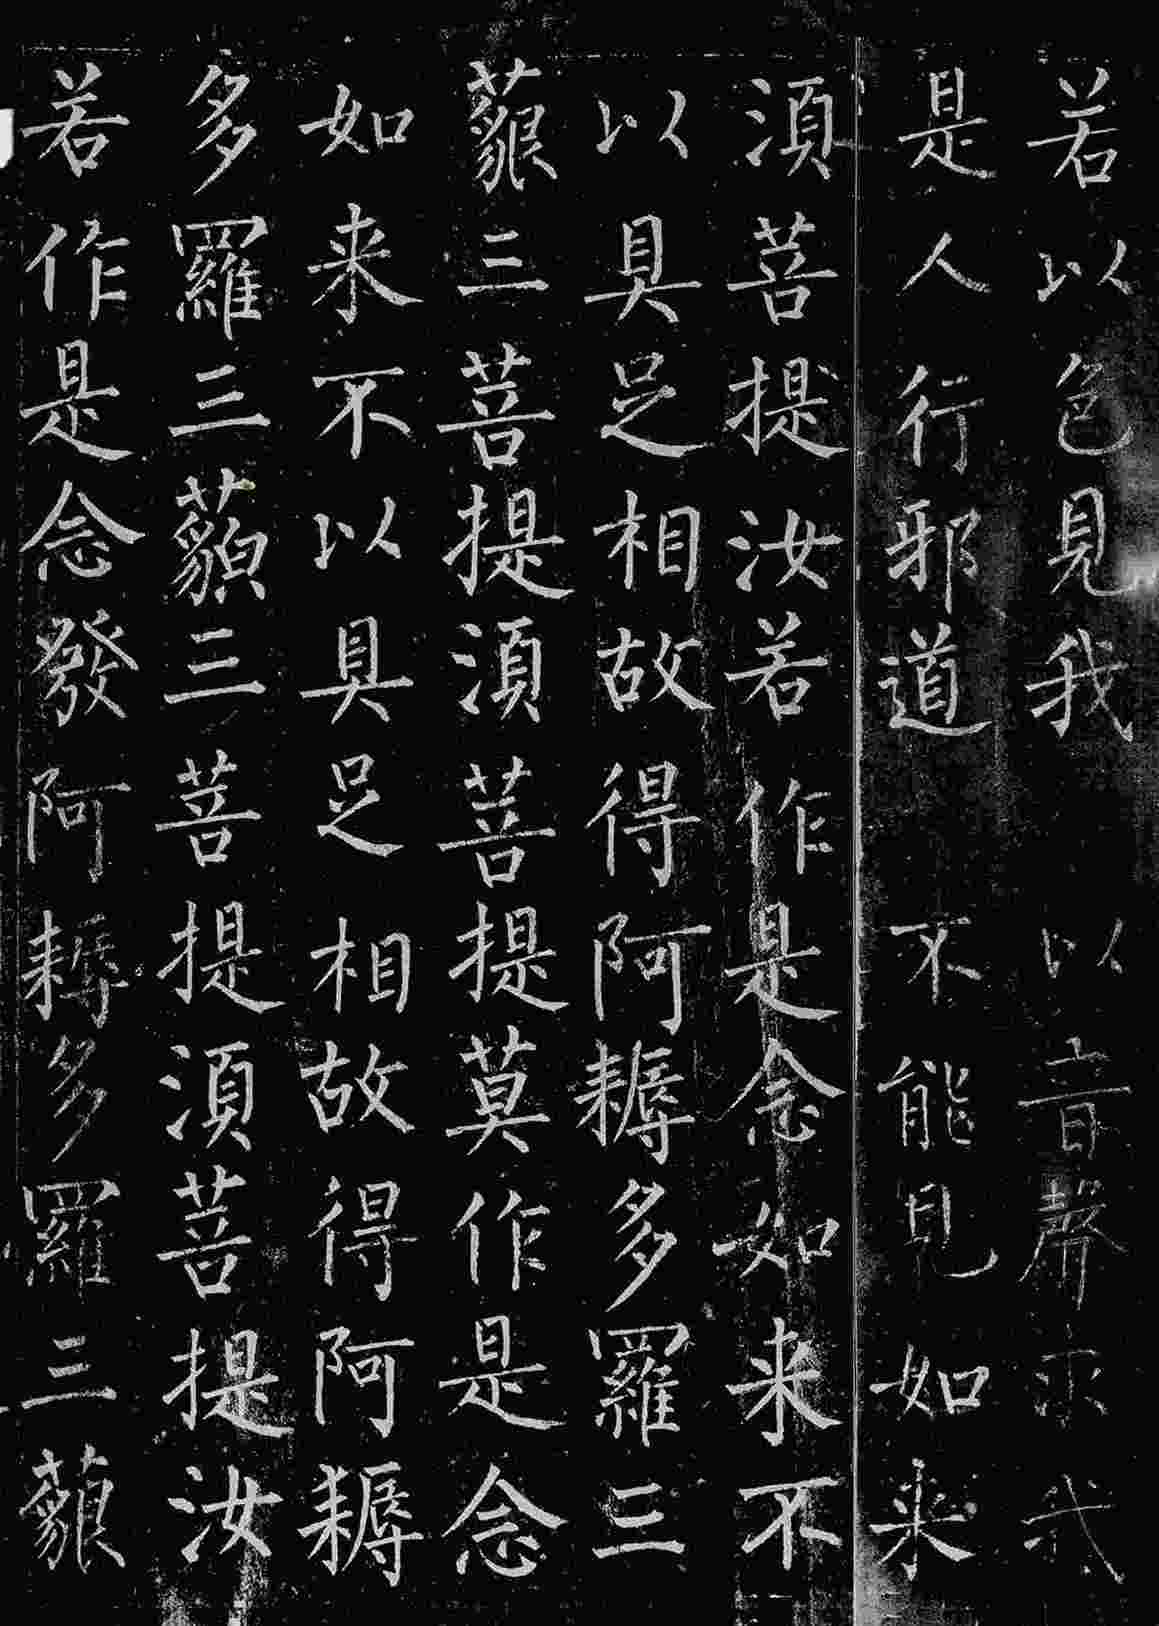 若以色見我 以音聲求我
是人行邪道 不能見如来
湏菩提汝若作是念如来不
以具足相故得阿耨多羅三
藐三菩提湏菩提莫作是念
如来不以具足相故得阿耨
多羅三藐三菩提湏菩提汝
若作是念發阿耨多羅三藐